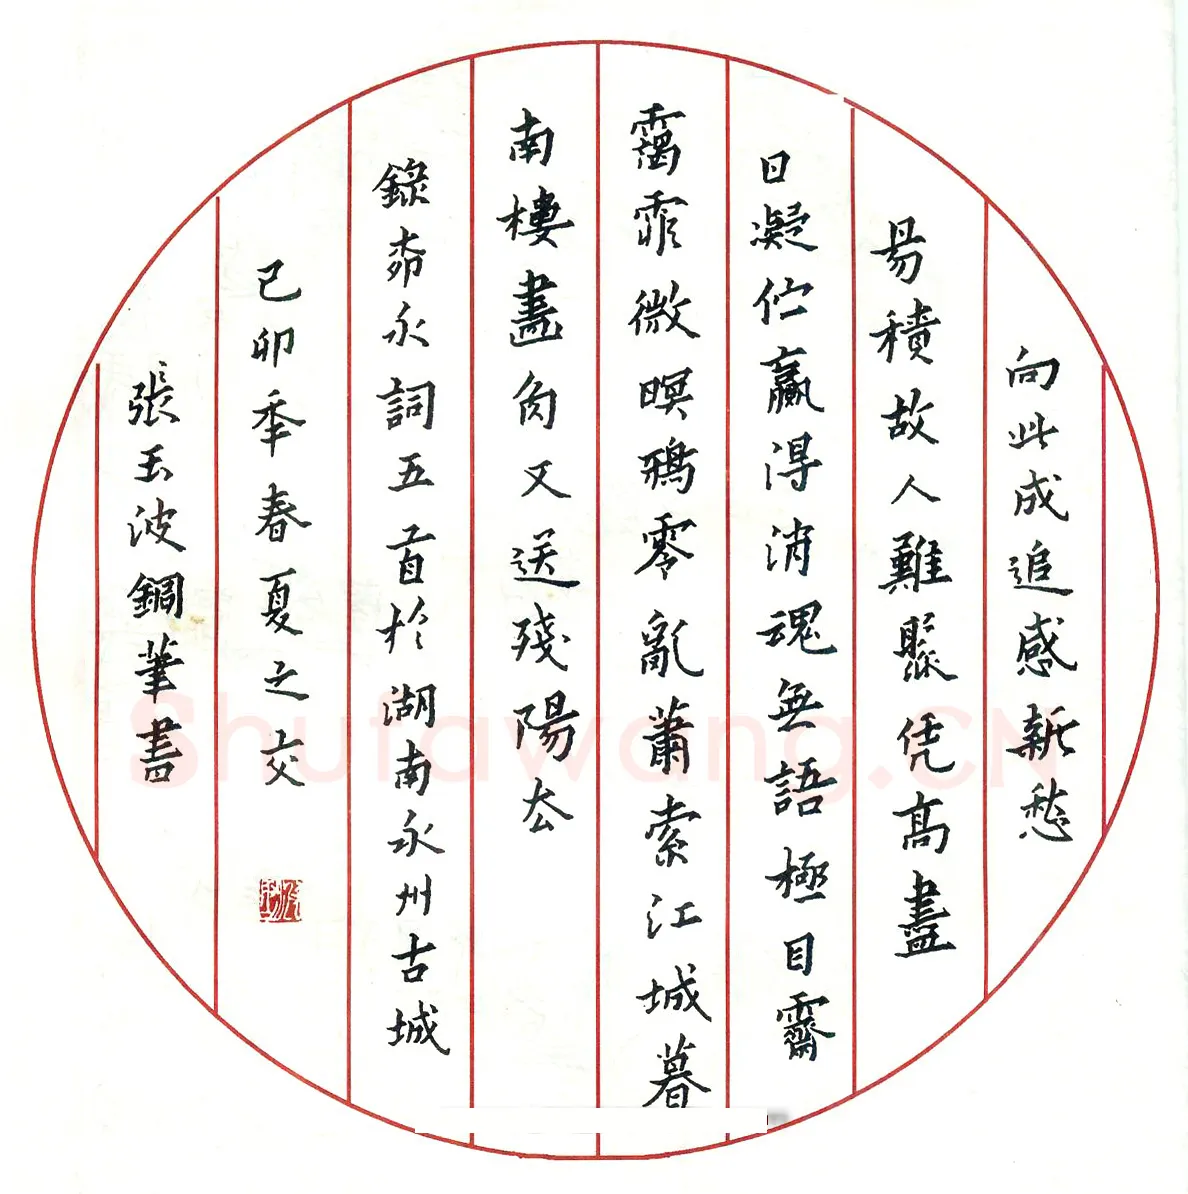 向此成追感新愁
易積故人難聚凭高盡
日凝伫贏得消魂無語極目霽
靄霏微暝鴉零亂蕭索江城暮
南樓畫角又送殘陽去
錄柳永詞五首於湖南永州古城
己卯年春夏之交
張玉波鋼筆書
Shufawang.CN